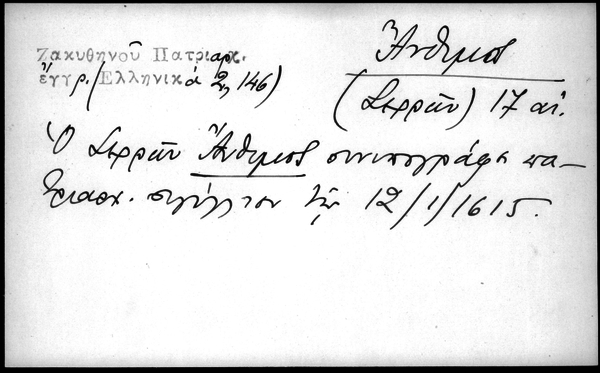 Ζακυθηνοῦ Πατριαρχ.
ἔγγρ. (Ἑλληνικά 2, 146)
Ἄνθιμος
(Σερρῶν) 17 αἰ.
Ὁ Σερρῶν Ἄνθιμος συνυπογράφει πα-
τριαρχ. σιγίλλιον τῇ 12/1/1615.